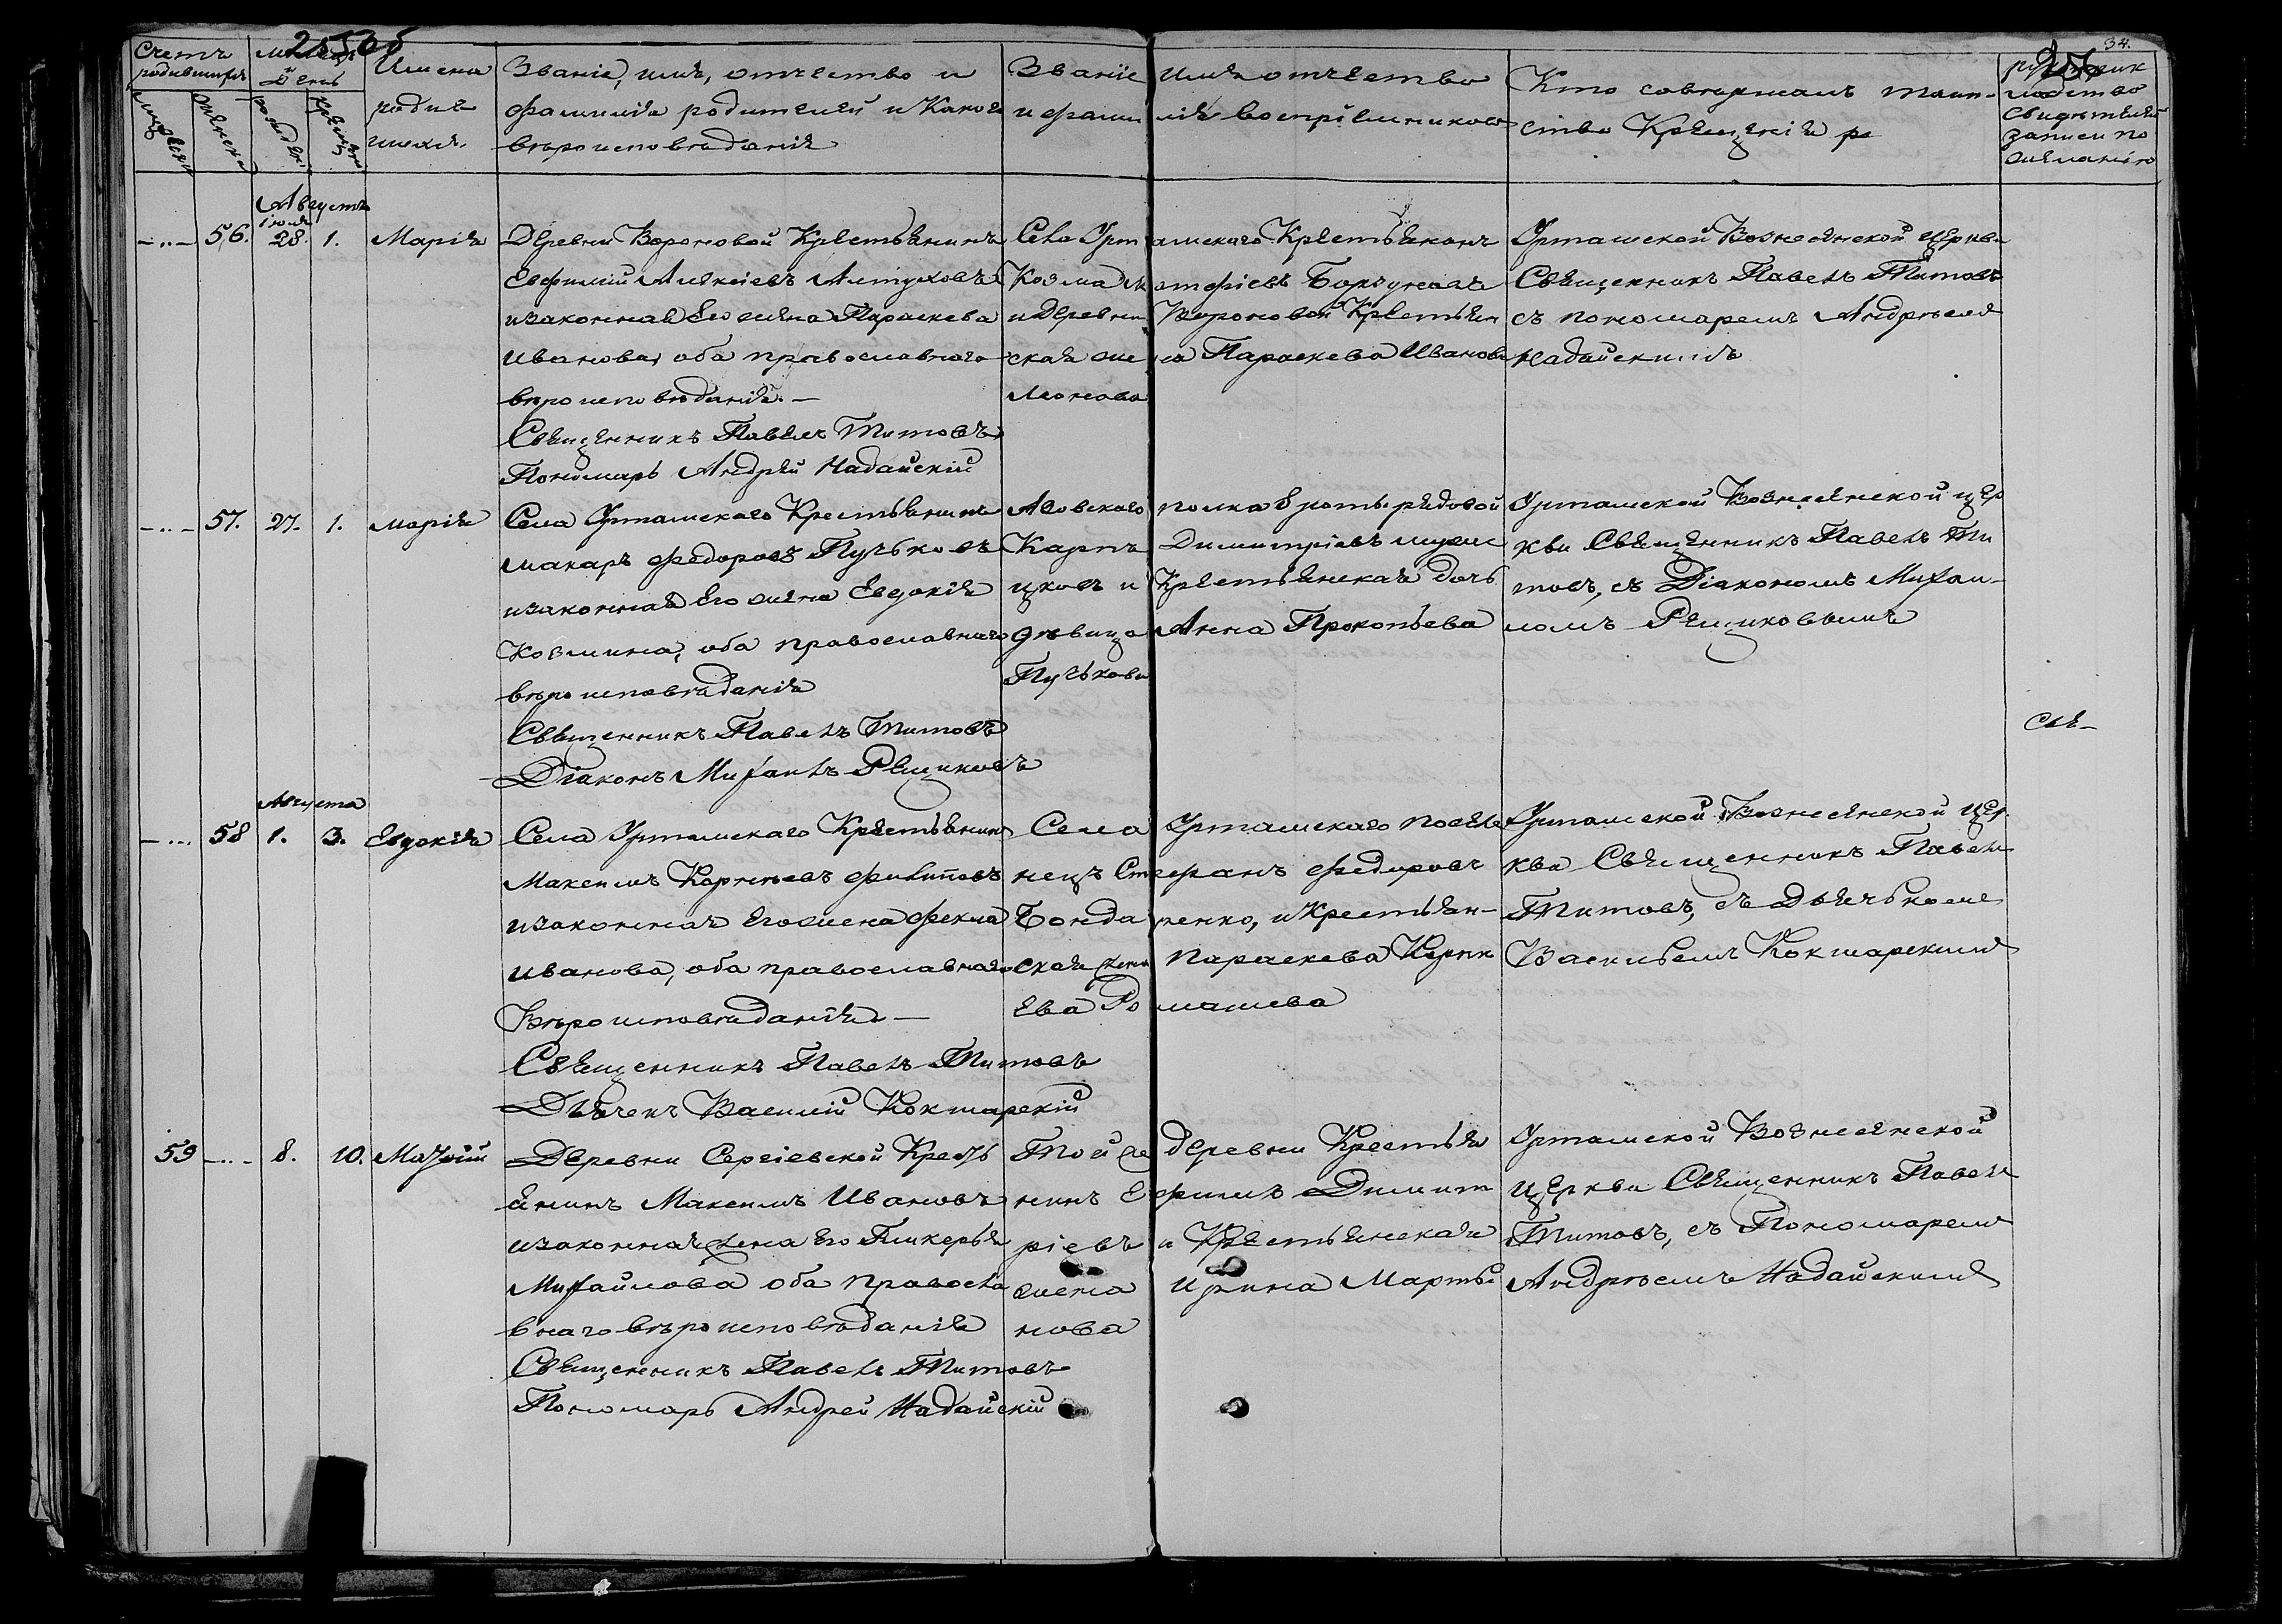 255об
34.
Счетъ родившихся
Мужеска
Женска
Месяцъ и День
рожденія
крещенія
Имена родившихся.
Званіе, имя, отчество и
фамилія родителей и какого
вѣроисповѣданія
Званіе имя отчество
и фамилія воспріемниковъ
Кто совершалъ таин-
ство Крещенія
рукоприкладство
свидѣтелей
записи по
желанію
Августъ
-..- 56. іюля 28. 1. Марія
Деревни Вороновой Крестьянинъ
Евфимій Алексіевъ Алтуховъ
и законная его жена Параскева
Иванова, оба православнаго
вѣроисповѣданія. —
Священникъ Павелъ Титовъ
Пономарь Андрей Надайскій
Села Уртамскаго Крестьянинъ
Козма
и Деревни Вороновой Крестьян
ская жена Параскева Иванова
Уртамской Вознесенской церкви
Священникъ Павелъ Титовъ
съ пономаремъ Андреемъ
Надайскимъ
-..- 57. 27. 1. Марія
Села Уртамскаго Крестьянинъ
Макаръ Федоровъ Пучьковъ
и законная его жена Евдокія
Козмина, оба православнаго
вѣроисповѣданія
Священникъ Павелъ Титовъ
Діаконъ Михаилъ Рещиковъ
Азовскаго полка 8 роты рядовой
Карпъ Димитріевъ
и Крестьянская дочь
дѣвица Анна Прокопьева
Пучькова
Уртамской Вознесенской цер
кви Священникъ Павелъ Ти
товъ, съ Діакономъ Михаи-
ломъ Рещиковымъ
Августа
-... 58 1. 3. Евдокія
Села Уртамскаго Крестьянинъ
Максимъ Корниевъ Филиповъ
и законная его жена Фекла
Иванова, оба православнаго
Вѣроисповѣданія —
Священникъ Павелъ Титовъ
Дьячекъ Василій Кокшарскій
Села Уртамскаго поселе
нецъ Стефанъ Федоровъ
Бондаренко, и Крестьян-
ская жена Параскева Корни
ева Ромашева
Уртамской Вознесенской цер.
кви Священникъ Павелъ
Титовъ, съ Дьячькомъ
Васильемъ Кокшарскимъ
59 -..- 8. 10.
Деревни Сергіевской Кресть
янинъ Максимъ Ивановъ
и законная жена его Гликерья
Михайлова оба правосла
внаго вѣроисповѣданія
Священникъ Павелъ Титовъ
Пономарь Андрей Надайскій
Той же деревни Крестья
нинъ Ефимъ Димит
ріевъ и Крестьянская
жена Ирина Марты
нова
Уртамской Вознесенской
церкви Священникъ Павелъ
Титовъ, съ Пономаремъ
Андреемъ Надайскимъ